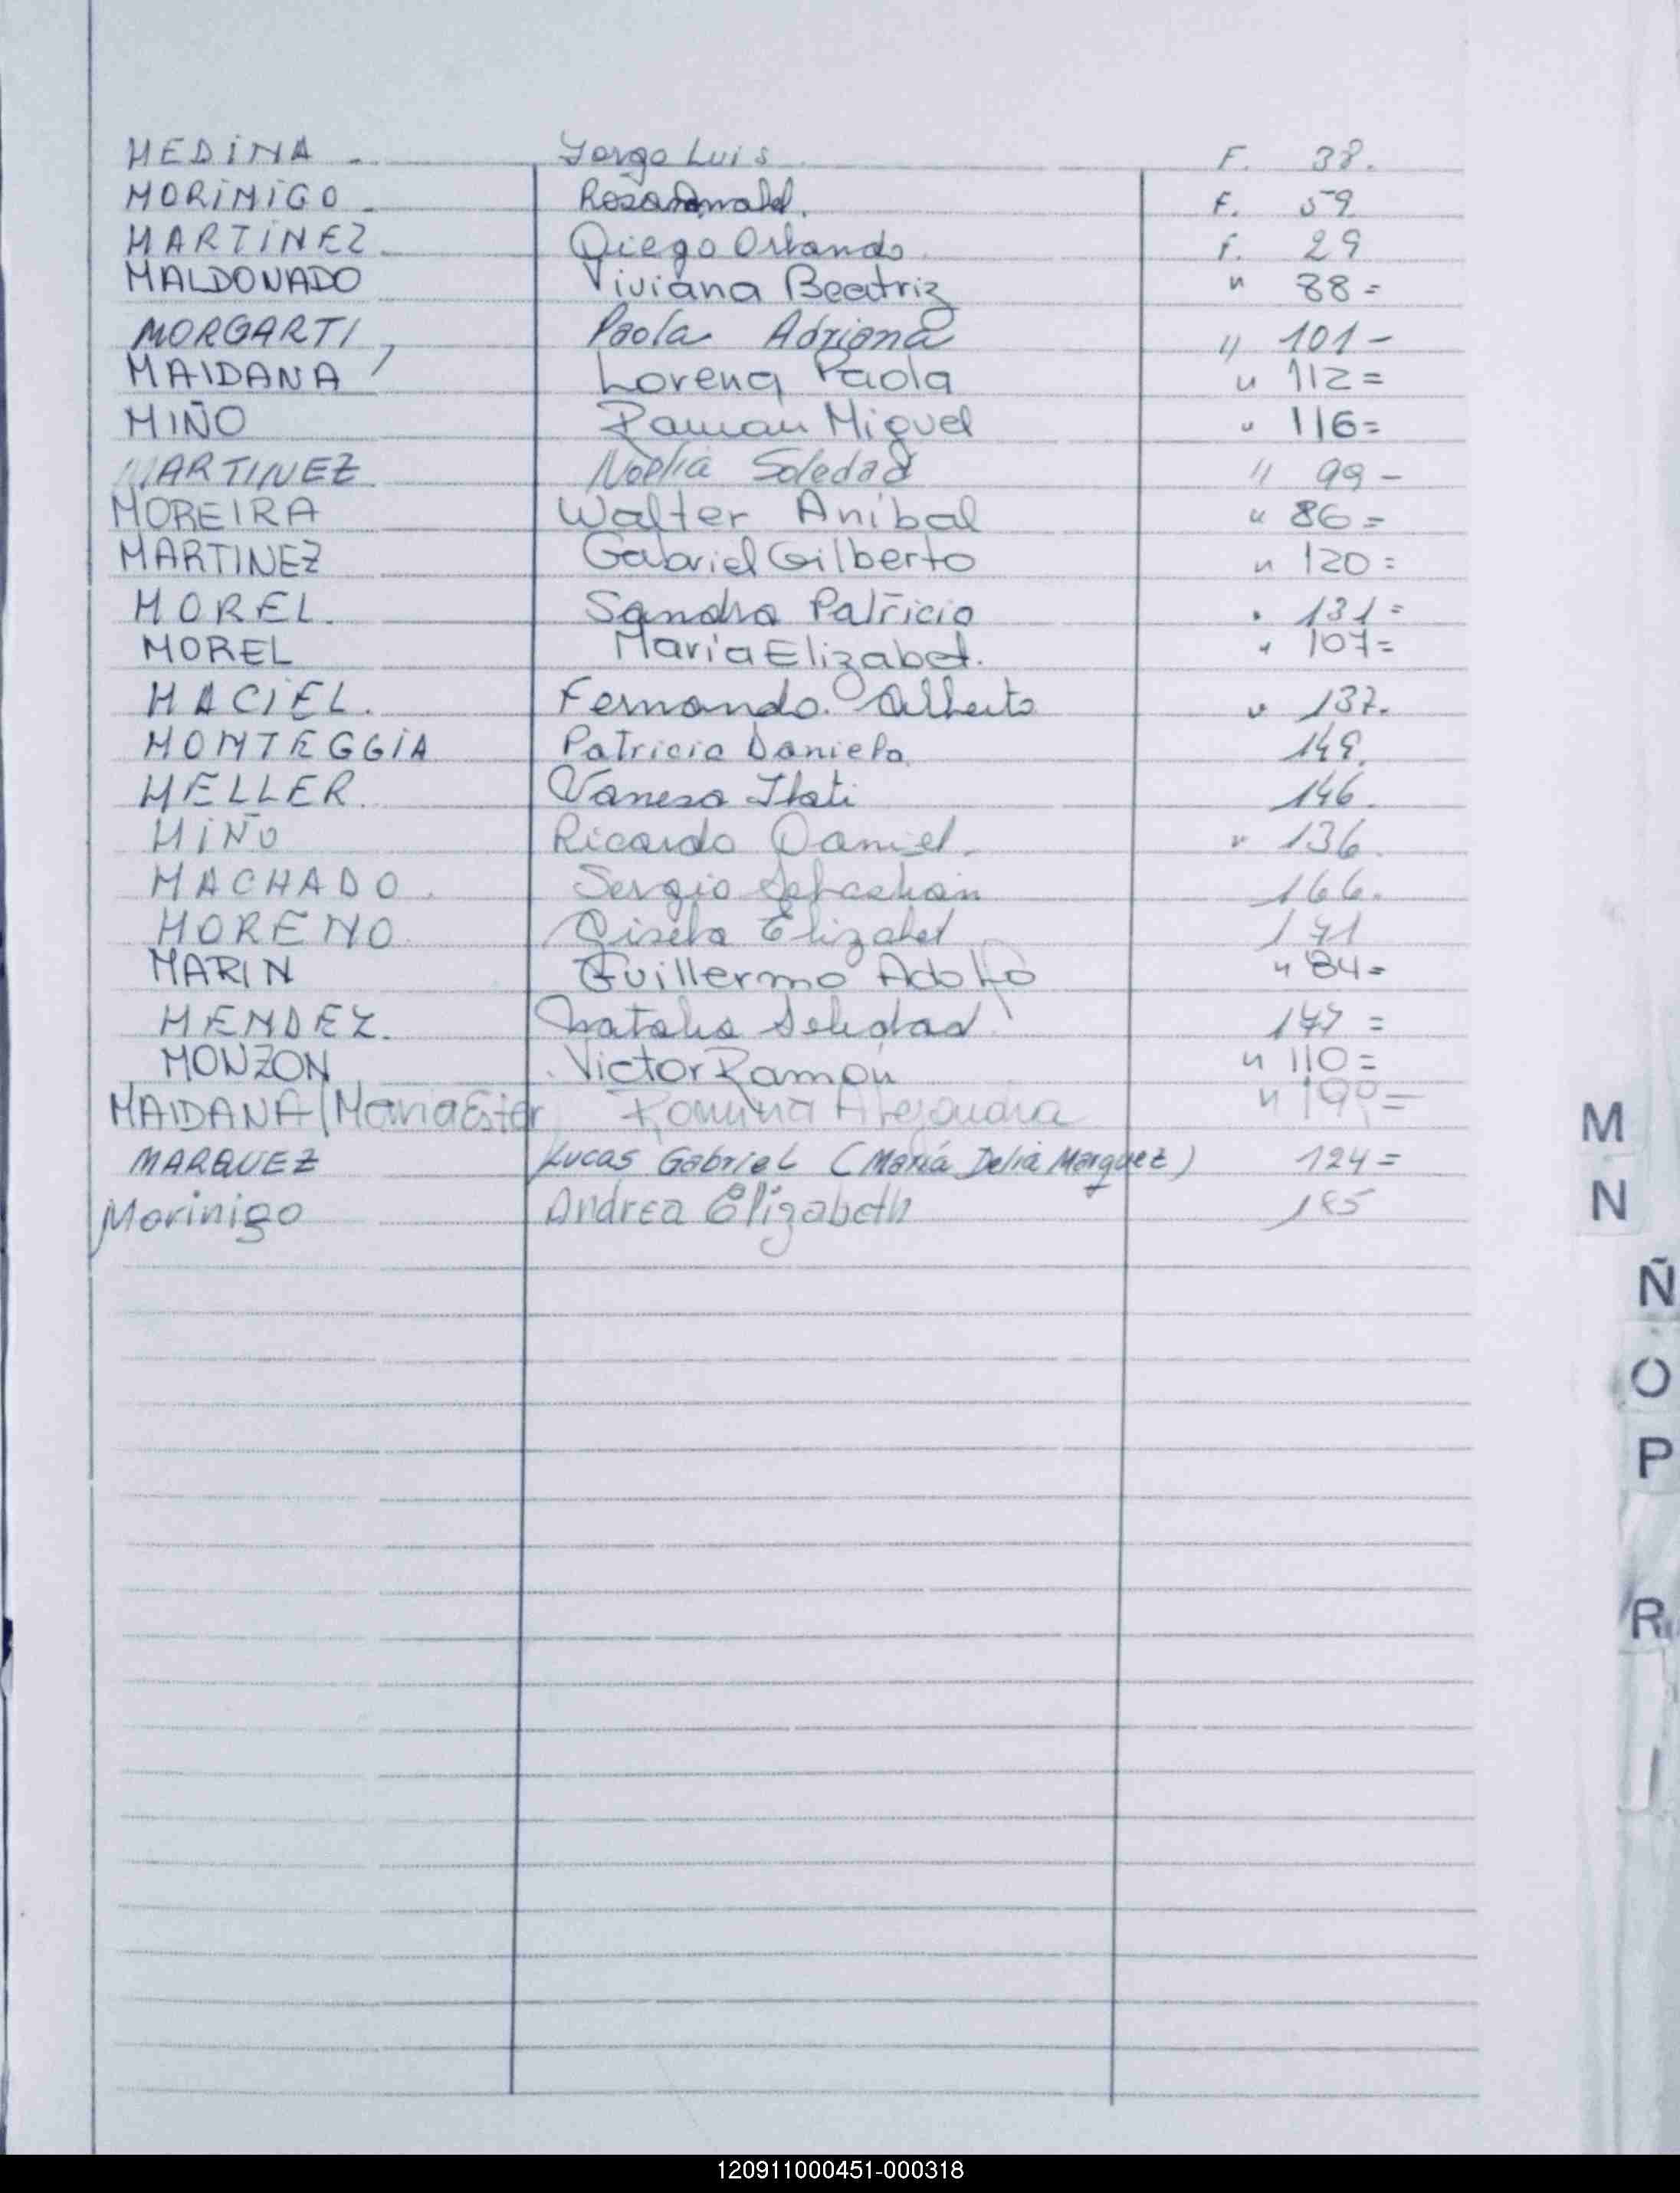 MEDINA. Jorge Luis F. 38.
MORINIGO. F. 59
MARTINEZ Diego Orlando F. 29
MALDONADO Viviana Beatriz " 88=
MORGARTI, Paola Adriana " 101-
MAIDANA Lorena Paola " 112=
MIÑO Ramon Miguel " 116=
MARTINEZ Noelia Soledad " 99-
MOREIRA Walter Anibal " 86=
MARTINEZ Gabriel Gilberto " 120=
MOREL. Sandra Patricia " 131=
MOREL María Elizabet. " 107=
MACIEL. Fernando Alberto " 137.
MONTEGGIA Patricia Daniela 149.
MELLER. Vanesa Itati 146.
MIÑO Ricardo Daniel. " 136.
MACHADO. Sergio Sebastian 166.
MORENO Gisela Elizabet
MARIN Guillermo Adolfo " 84=
MENDEZ. Natalia Soledad
MONZON Victor Ramón " 110=
MAIDANA (Maria Ester Romina Alejandra "
MARQUEZ Lucas Gabriel (María Delia Marquez) 124=
Morinigo Andrea Elizabeth
M
N
Ñ
O
P
R
120911000451-000318